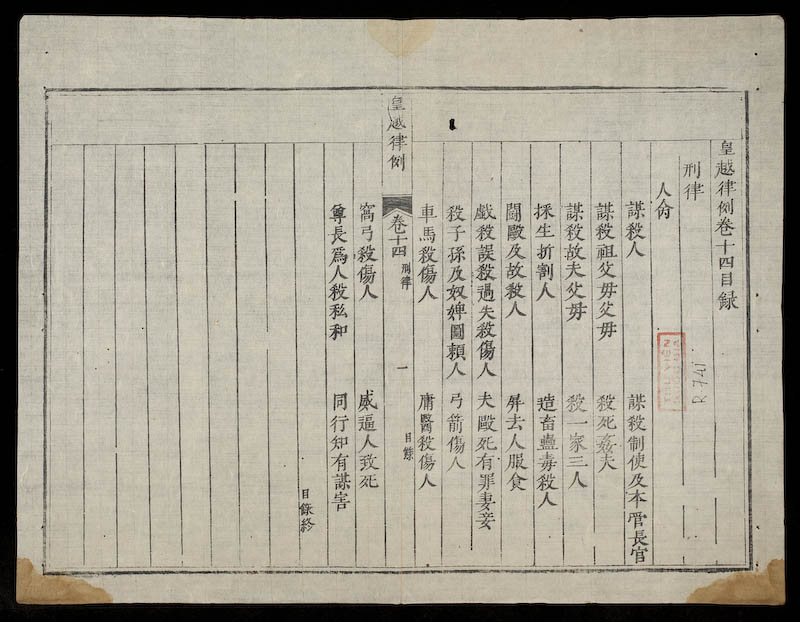 皇越律例卷十四目録
刑律
人命
謀殺人 謀殺制使及本管長官
謀殺祖父毋父毋 殺死姦夫
謀殺故夫父毋 殺一家三人
採生折割人 造畜蠱毒殺人
鬪毆及故殺人 屏去人服食
戲殺誤殺過失殺傷人 夫毆死有罪妻妾
殺子孫及奴婢圖賴人 弓箭傷人
車馬殺傷人 庸醫殺傷人
皇越律例 卷十四 刑律 一 目錄
窩弓殺傷人 威逼人致死
尊長爲人殺私和 同行知有謀害
目錄終
R.741